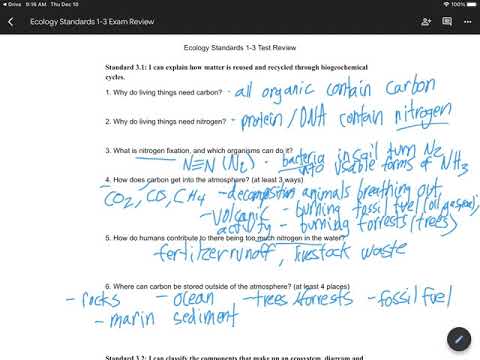 Drive 9:16 AM Thu Dec 10 100%
Ecology Standards 1-3 Exam Review
Ecology Standards 1-3 Test Review
Standard 3.1: I can explain how matter is reused and recycled through biogeochemical
cycles.
1. Why do living things need carbon? - all organic contain carbon
2. Why do living things need nitrogen? - protein/DNA contain nitrogen
3. What is nitrogen fixation, and which organisms can do it?
N≡N (N2) - bacteria in soil turn N2
into usable forms of NH3
4. How does carbon get into the atmosphere? (at least 3 ways)
CO2, CH4 - decomposition animals breathing out
- volcanic activity - burning fossil fuel (oil, gas, coal),
- burning forrests (trees)
5. How do humans contribute to there being too much nitrogen in the water?
fertilizer runoff, livestock waste
6. Where can carbon be stored outside of the atmosphere? (at least 4 places)
- rocks - ocean - trees/forrests - fossil fuel
- marin sediment
Standard 3.2: I can classify the components that make up an ecosystem, diagram and